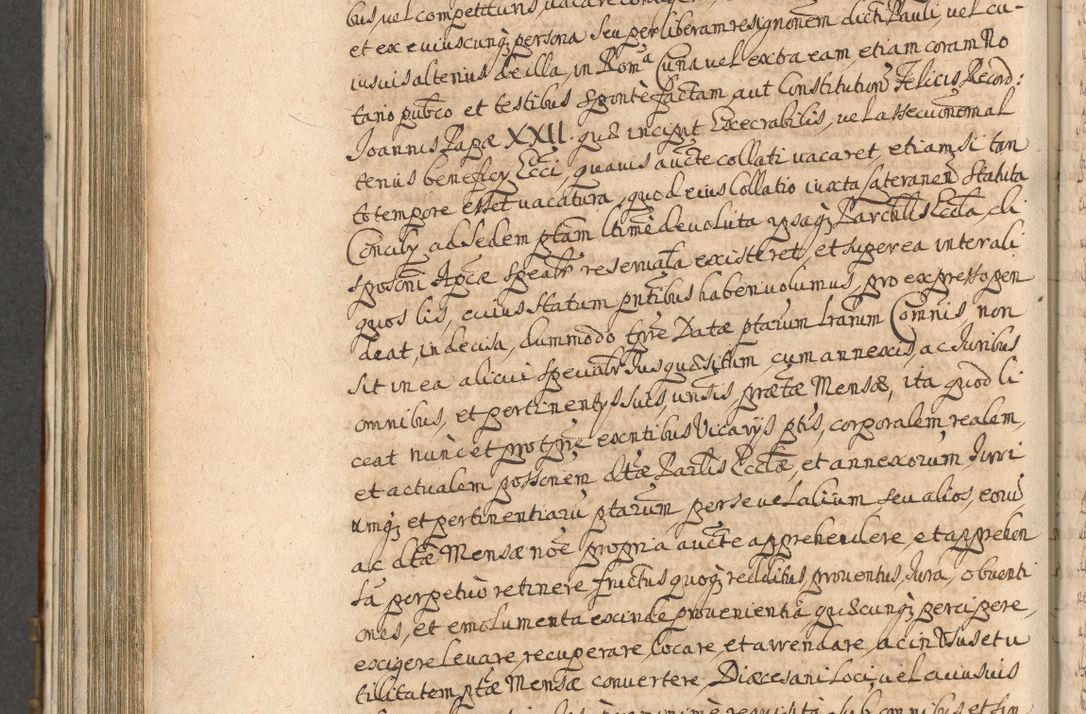 bus, vel competituris, vacare contigerit
et ex cuiuscunq; persona seu per liberam resignonem dicti Pauli, vel cu-
iusvis alterius de illa, in Roma Curia vel extra eam etiam coram No
tario pubco et testibus sponte factam, aut Constitutione Felicis Record:
Joannis Papæ XXII. quæ incipit Execrabilis, vel assecutionem al
terius beneficy Ecci, quavis aucte collati vacaret, etiamsi tan
to tempore esset vacatura, quod eius Collatio iuxta Lateranen Statuta
Concily ad sedem ptam ltime devoluta ipsaq; Parchlis Eccla, di
sposoni Aplcæ spealr reservata existeret, et super ea inter ali
quos lis, cuius statum pntibus haberi volumus, pro expresso pen
deat, indecisa, dummodo tpre Datæ ptarum lrarum Commnis, non
sit in ea alicui specialr Jus quæsitum, cum annexis, ac Juribus
omnibus, et pertinentys suis, unitis præctæ Mensæ, ita quod li
ceat nunc et pro tpre exntibus Vicarys ptis, corporalem realem,
et actualem possonem dtæ Parlis Ecclæ, et annexorum Juri
umq; et pertinentiaru ptarum per se vel alium seu alios, eoru
ac dtæ Mensæ noe propria aucte apprehendere, et apprehen
sa perpetuo retinere, fructus quoq; redditus, proventus, Jura, obventi
ones, et emolumenta exinde provenientia quæcunq; percipere,
exigere levare, recuperare, locare, et arrendare, ac in Usus et u
tilitatem ptæ Mensæ convertere, Diæcesani loci, vel cuiusvis